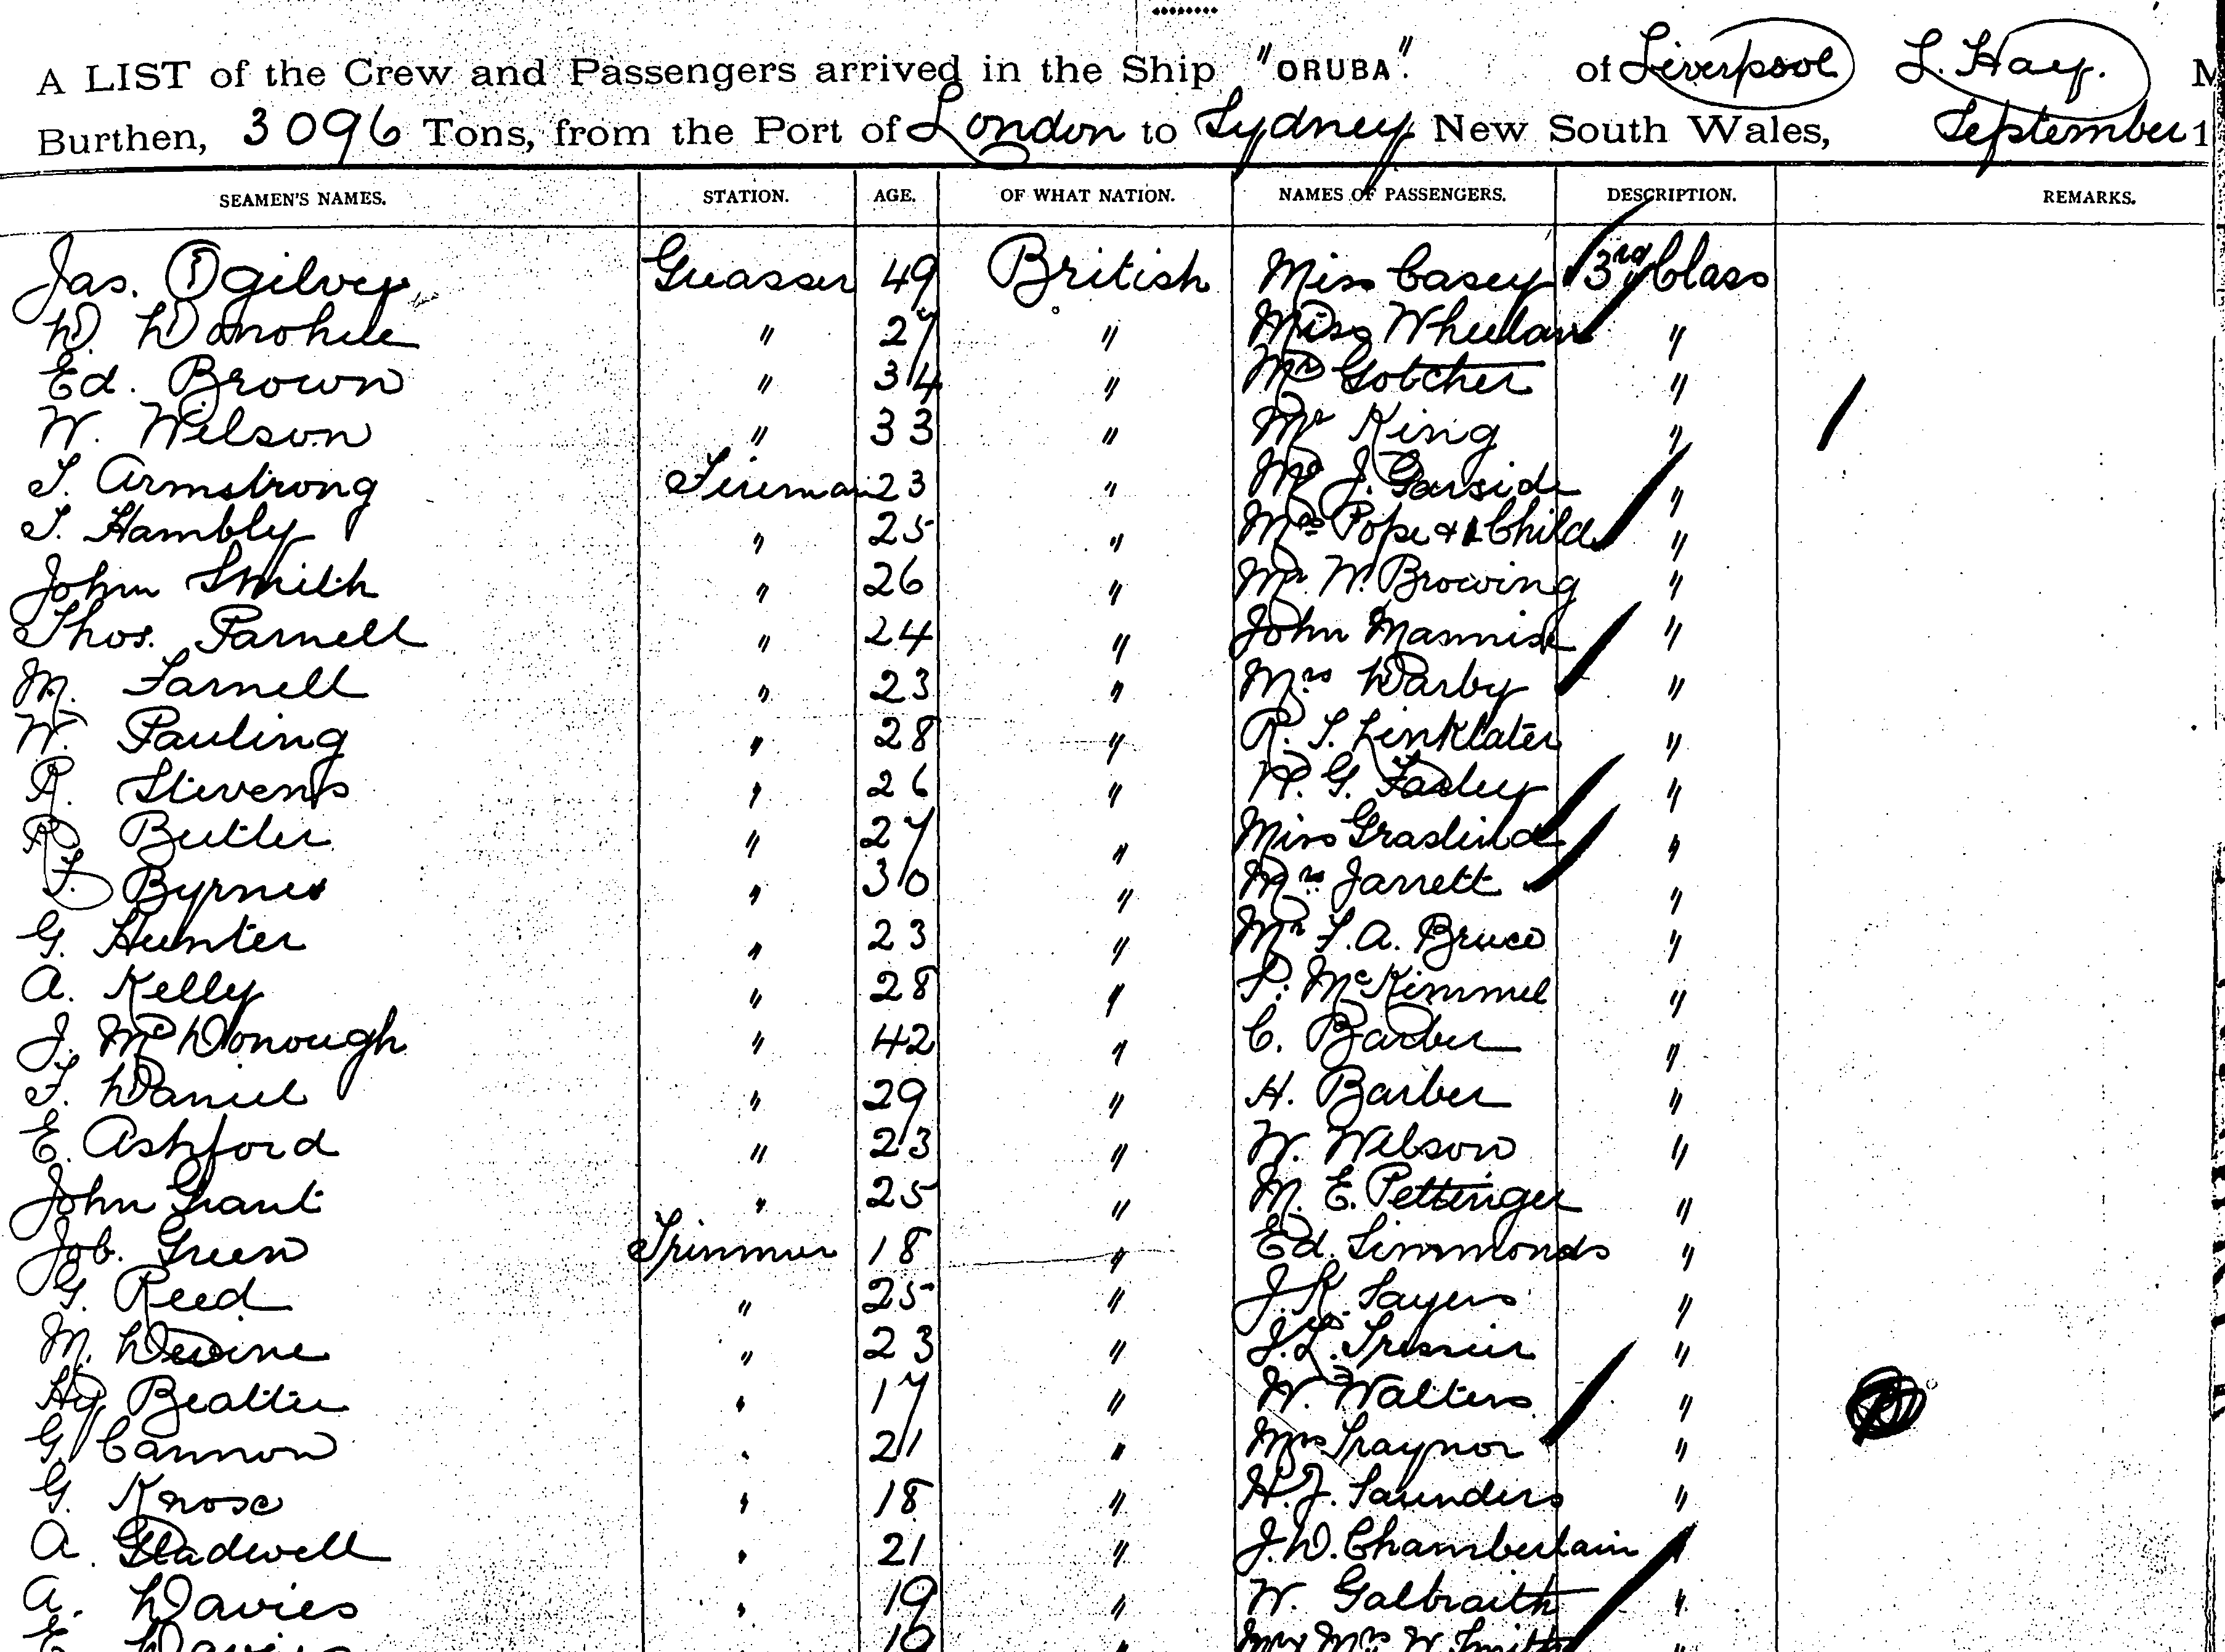 A LIST of the Crew and Passengers arrived in the Ship "ORUBA". of Liverpool L. Hay. M
Burthen, 3096 Tons, from the Port of London to Sydney New South Wales, September 1
SEAMEN'S NAMES. STATION. AGE. OF WHAT NATION. NAMES OF PASSENGERS. DESCRIPTION. REMARKS.
Jas. Ogilvey Greaser 49 British Miss Casey 3rd Class
D. Donohue " 27 " Miss Wheelan "
Ed. Brown " 34 " Mr Gotcher "
W. Wilson " 33 " Mr King "
T. Armstrong Fireman 23 " Mr J. Garside "
T. Hambly " 25 " Mrs Pope & 1 Child "
John Smith " 26 " Mr W. Browing "
Thos. Parnell " 24 " John "
M. Farnell " 23 " Mrs Darby "
W. Pauling " 28 " R. T. Linklater "
R. Stivens " 26 " G. "
R Butler " 27 " Miss "
F. Byrnes " 30 " Mrs Jarrett "
G. Hunter " 23 " Mr F. A. Bruce "
A. Kelly " 28 " P. McKimmel "
J. McDonough " 42 " C. Barber "
F. Daniel " 29 " H. Barber "
E. Ashford " 23 " W. Wilson "
John Grant " 25 " M. E. Pettinger "
Job. Green Trimmer 18 " Ed. Simmonds "
G. Reed " 25 " J. K. Sayers "
M. Devine " 23 " J. L. "
Hy Beattie " 17 " W. Walters "
G Cannon " 21 " Mrs Traynor "
G. Knose " 18 " H. J. Saunders "
A. Gladwell " 21 " J. D. Chamberlain "
A. Davies " 19 " W. Galbraith "
E. Davies 19 " Mr & Mrs W. Smith "